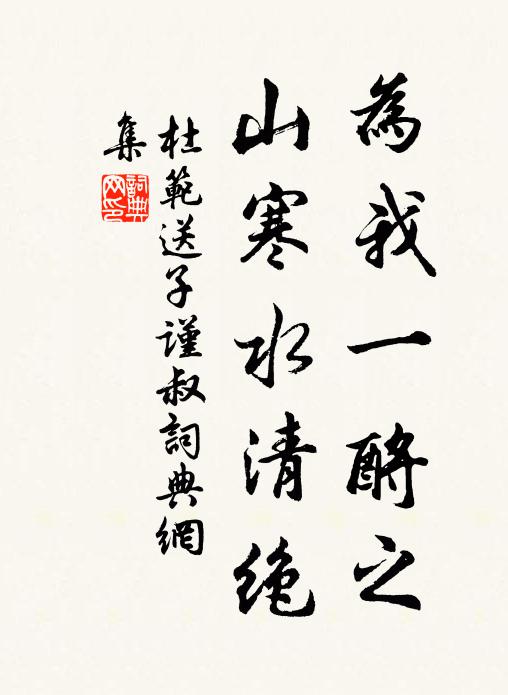 為我一酹之
山寒水清绝
杜範送子謹叔詞典網
集
詞典網印